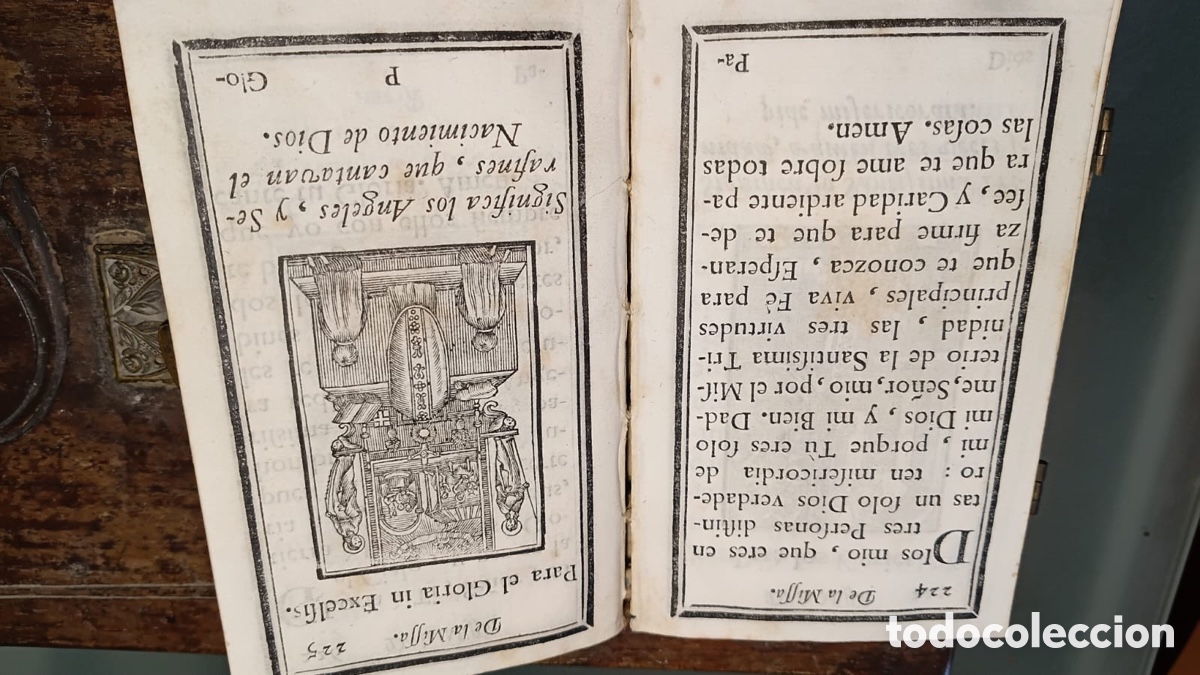 224 De la Miſſa.
DIos mio, que eres en
tres Perſonas diſtin-
tas un ſolo Dios verdade-
ro : ten miſericordia de
mi, porque Tù eres ſolo
mi Dios, y mi Bien. Dad-
me, Señor, mio, por el Miſ-
terio de la Santiſsima Tri-
nidad, las tres virtudes
principales, viva Fè para
que te conozca, Eſperan-
za firme para que te de-
ſee, y Caridad ardiente pa-
ra que te ame ſobre todas
las coſas. Amen.
Pa-
De la Miſſa. 225
Para el Gloria in Excelſis.
Significa los Angeles, y Se-
rafines, que cantavan el
Nacimiento de Dios.
P Glo-
todocoleccion